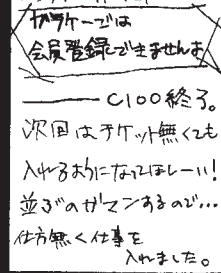 ガラケーでは
会員登録できませんよ
C100終了。
次回はチケット無くても
入れるようになってほしーい!
並ぶのガマンするので…
仕方無く仕事を
入れました。